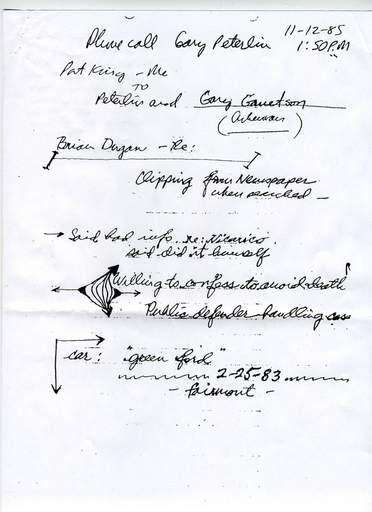 Phone call Gary Peterlin 11-12-85
1:50 P.M
Pat King - Me
TO
Peterlin and Gary Garretson
(Ackerman)
Brian Dugan - Re:
Clipping from Newspaper
when arrested -
→ Said had info re: Nicarico
said did it himself
Willing to confess to avoid death
Public defender handling case
car: "green ford"
2-25-83
- fairmont -